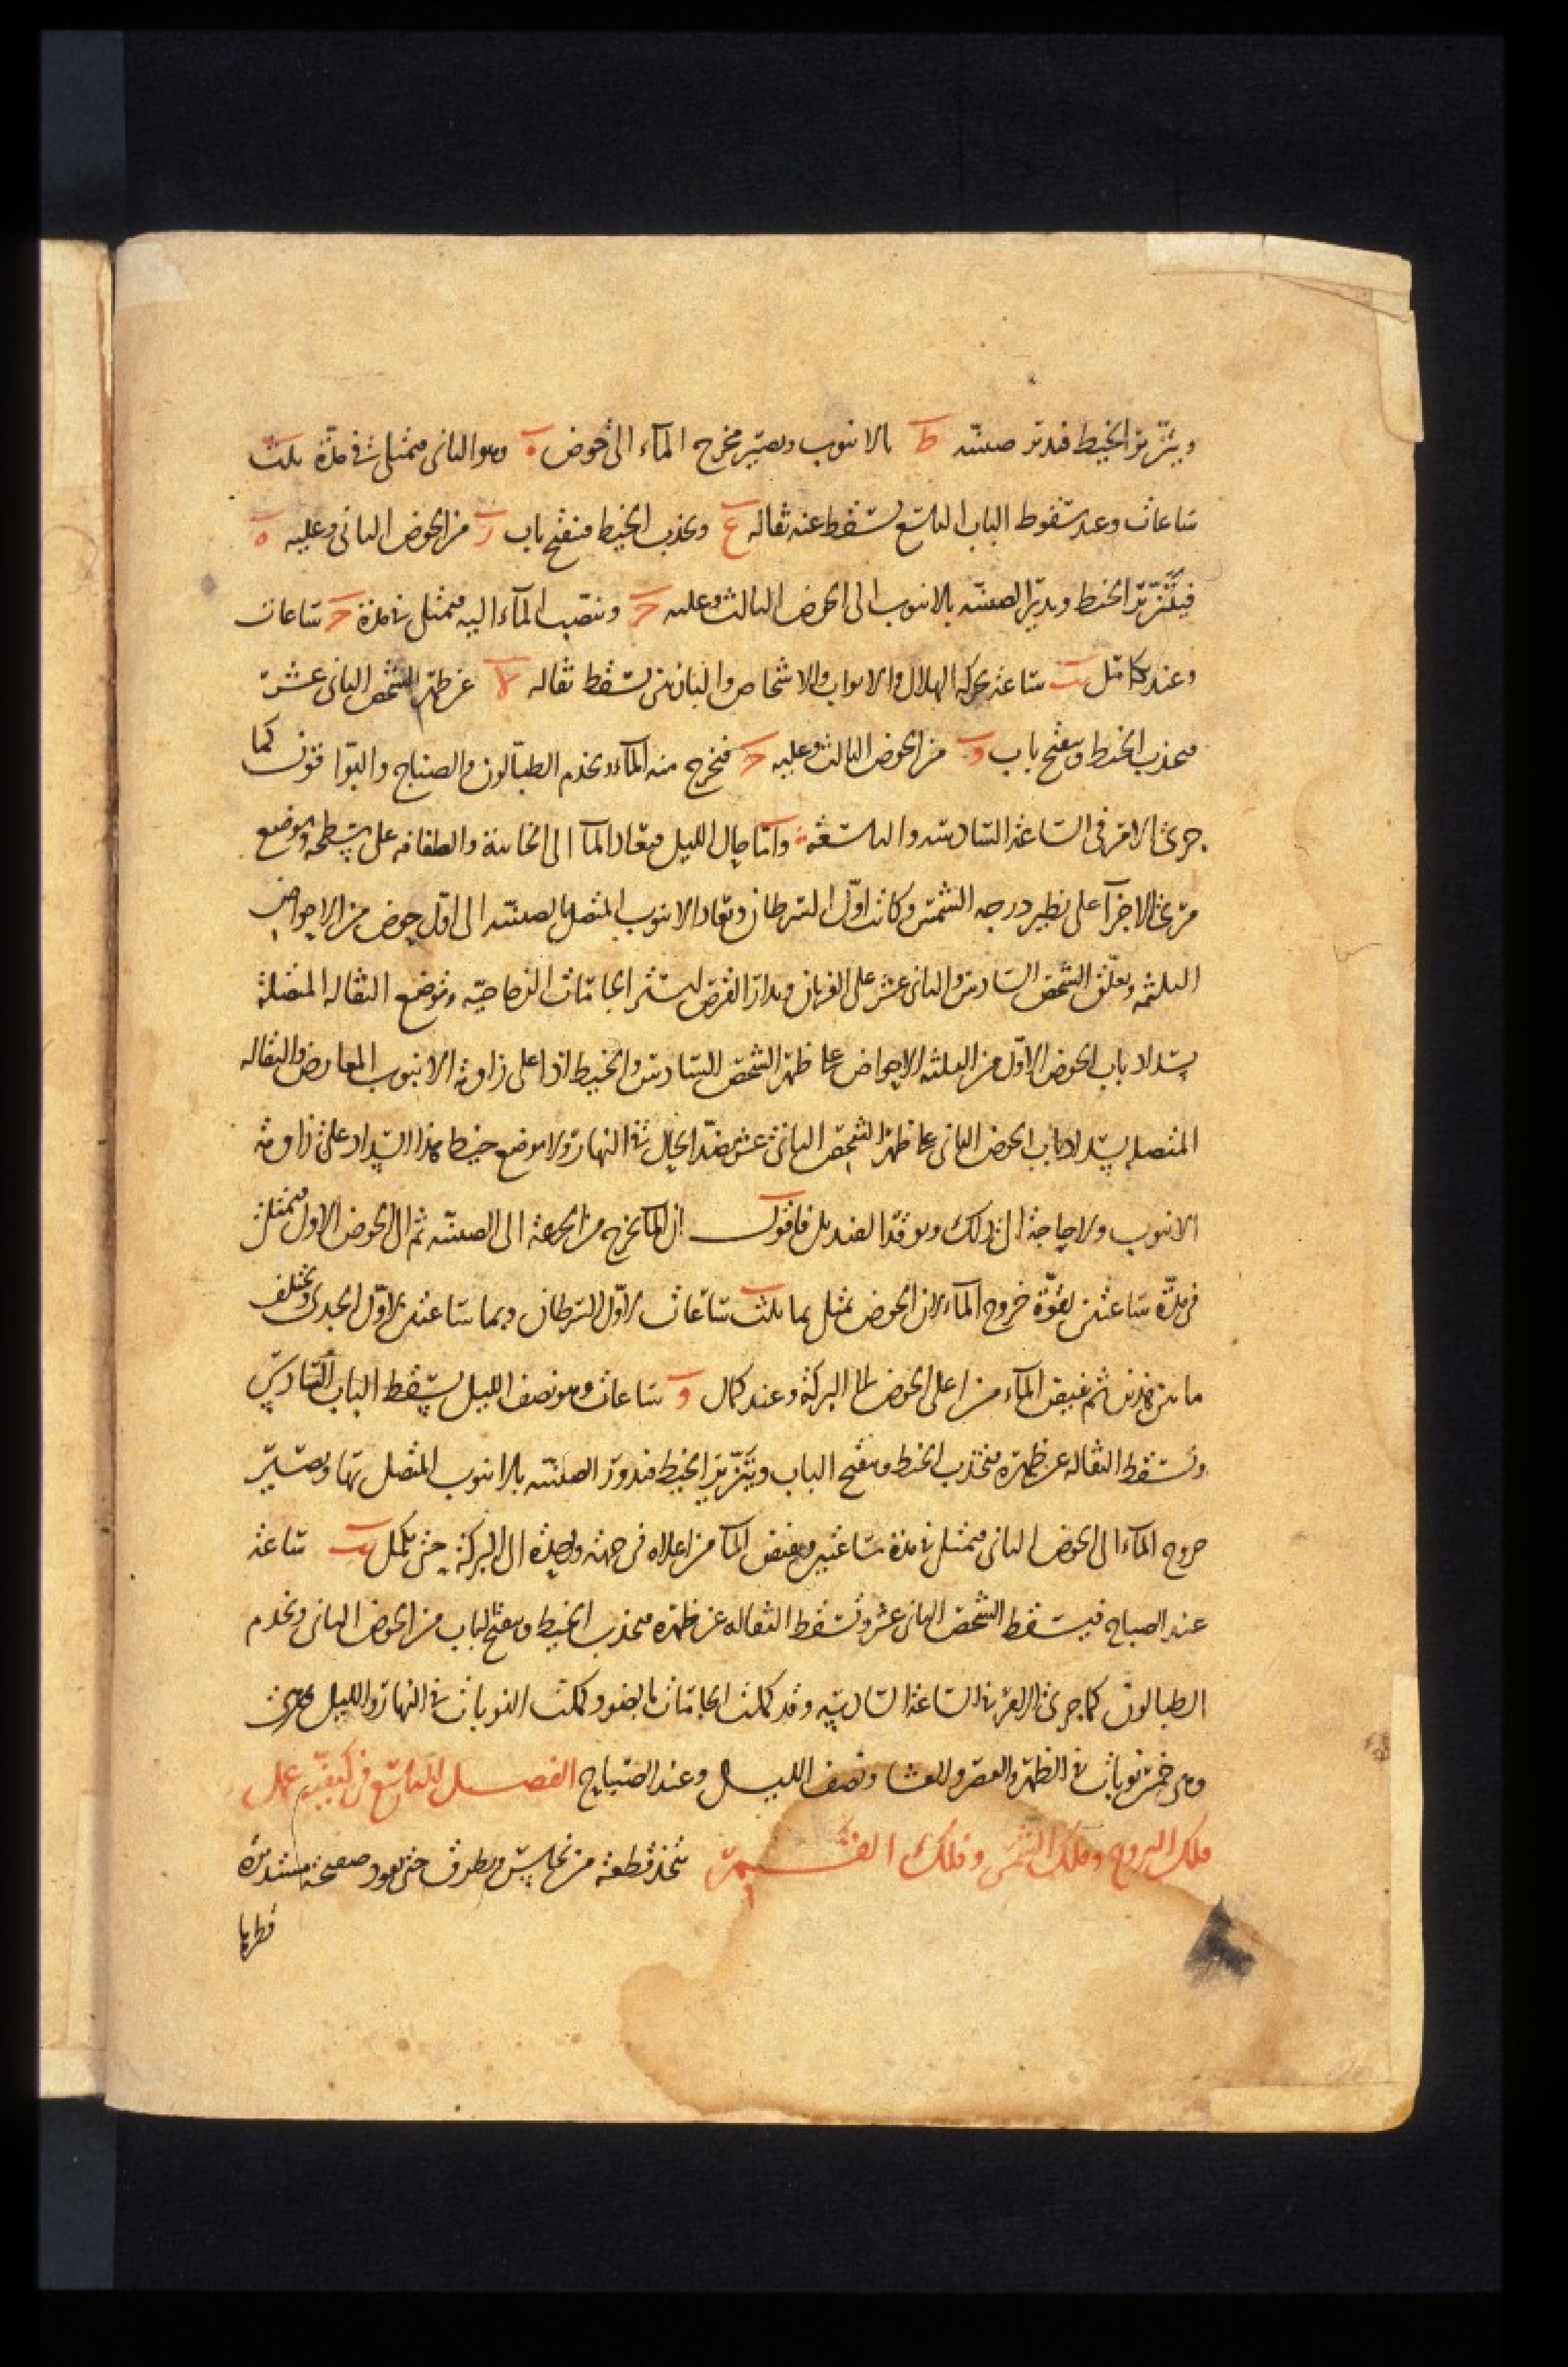 ويتزيز الخيط فتدير صينية ط بالانبوب ويصير مخرج المآء الى حوض ه وهو الثانى فيمتلئ فى مدة ثلث
ساعات وعند سقوط الباب التاسع تسقط عنه ثقاله ع وتجذب الخيط فينفتح باب ز من الحوض الثانى وعليه ه
فيتزيز الخيط وتدير الصينية بالانبوب الى الحوض الثالث وعليه ح وينصب المآء اليه فيمتلئ فى مدة ح ساعات
وعند تكامل يب ساعة بحركة الهلال والابواب والاشخاص والبازيين تسقط ثقاله لا عن ظهر الشخص الثانى عشر
فيجذب الخيط وينفتح باب و من الحوض الثالث وعليه ح فيخرج منه المآء ويخدم الطبالون والصناج والبواقون كما
جرى الامر فى الساعة السادسة والتاسعة واما حال الليل فيعاد المآ الى الخانة والطفافه على سطحه ويوضع
مرى الاجزآ على نظير درجة الشمس وكانت اول السرطان ويعاد الانبوب المتصل بالصينية الى اول حوض من الاحواض
الثلثة ويعلق الشخص السادس والثانى عشر على الفرزان ويدار القرص لتستتر الجامات الزجاجية وتوضع الثقاله المتصلة
بسداد باب الحوض الاول من الثلثة الاحواض على ظهر الشخص السادس والخيط اذا على زاوية الانبوب المعارض والثقاله
المتصلة بسداد باب الحوض الثانى على ظهر الشخص الثانى عشر بضد الحال فى النهار ولا موضع خيط هذا السداد على زاوية
الانبوب ولا حاجة الى ذلك ويوقد القنديل فاقول ان المآ يخرج من الجزعة الى الصينية ثم الى الحوض الاول فيمتلئ
فى مدة ساعتين لقوة خروج المآء لان الحوض يمتلئ بما ثلث ساعات لاول السرطان وبما ساعتين لاول الجدى ويختلف
ما بين هذين ثم يفيض المآء من اعلى الحوض الى البركة وعند كمال و ساعات وهو نصف الليل يسقط الباب السادس
وتسقط الثقاله عن ظهره فتجذب الخيط وينفتح الباب ويتزيز الخيط فتدور الصينية بالانبوب المتصل بها ويصير
خروج المآء الى الحوض الثانى فيمتلئ فى مدة ساعتين ويفيض المآ من اعلاه فى جهة واحدة الى البركة حتى يكمل يب ساعة
عند الصباح فيسقط الشخص الثانى عشر وتسقط الثقاله عن ظهره فيجذب الخيط وينفتح الباب من الحوض الثانى ويخدم
الطبالون كما جرى الامر فى الساعة السادسة وقد كملت الجامات بالضو وكملت النوبات فى النهار والليل
وهى خمس نوبات فى الظهر والعصر والعشا ونصف الليل وعند الصباح الفصل التاسع فى كيفية عمل
فلك البروج وفلك الشمس وفلك القمر يتخذ قطعة من نحاس ويطرق حتى يعود صفيحة مستديرة
قطرها